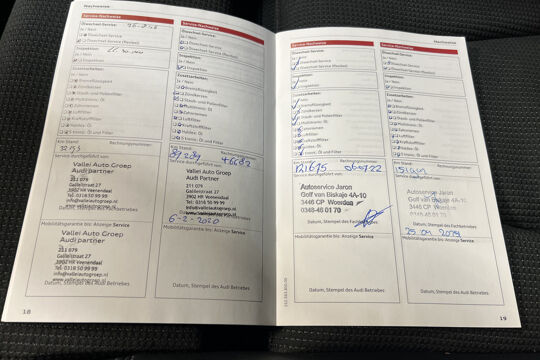 Nachweise
Service-Nachweise
Ölwechsel-Service:
Ja / Nein
Ölwechsel Service
Inspektion:
Ja / Nein
Inspektion
Zusatzarbeiten:
Ja / Nein
Bremsflüssigkeit
Zündkerzen
Staub- und Pollenfilter
Multitronic Öl
Zahnriemen
Luftfilter
Kraftstofffilter
Haldex Öl
S tronic: Öl und Filter
Km Stand:
Rechnungsnummer:
Service durchgeführt von:
Vallei Auto Groep
Audi Partner
211 079
Galileistraat 27
3902 HR Veenendaal
Tel. 0318 50 99 99
info@valleiautogroep.nl
www.valleiautogroep.nl
Datum, Stempel des Fachbetriebes
Mobilitätsgarantie bis: Anzeige Service
Vallei Auto Groep
Audi partner
211 079
Galileistraat 27
3902 HR Veenendaal
Tel. 0318 50 99 99
info@valleiautogroep.nl
www.valleiautogroep.nl
Datum, Stempel des Audi Betriebes
18
Service-Nachweise
Ölwechsel-Service:
Ja / Nein
Ölwechsel Service
Ölwechsel Service (flexibel)
Inspektion:
Ja / Nein
Inspektion
Zusatzarbeiten:
Ja / Nein
Bremsflüssigkeit
Zündkerzen
Staub- und Pollenfilter
Multitronic Öl
Zahnriemen
Luftfilter
Kraftstofffilter
Haldex Öl
S tronic: Öl und Filter
Km Stand:
Rechnungsnummer:
89289
46682
Service durchgeführt von:
Vallei Auto Groep
Audi Partner
211 079
Galileistraat 27
3902 HR Veenendaal
Tel. 0318 50 99 99
info@valleiautogroep.nl
www.valleiautogroep.nl
6-2-2020
Mobilitätsgarantie bis: Anzeige Service
Datum, Stempel des Audi Betriebes
Service-Nachweise
Ölwechsel-Service:
Ja / Nein
Ölwechsel Service
Ölwechsel Service (flexibel)
Inspektion:
Ja / Nein
Inspektion
Zusatzarbeiten:
Ja / Nein
Bremsflüssigkeit
Zündkerzen
Staub- und Pollenfilter
Multitronic Öl
Zahnriemen
Luftfilter
Kraftstofffilter
Haldex Öl
S tronic: Öl und Filter
Km Stand:
Rechnungsnummer:
Service durchgeführt von:
Autoservice Jaron
Golf van Biskaje 4A-10
3446 CP Woerden
0348-46 01 70
Datum, Stempel des Fachbetriebes
Mobilitätsgarantie bis: Anzeige Service
Datum, Stempel des Audi Betriebes
Nachweise
Service-Nachweise
Ölwechsel-Service:
Ja / Nein
Ölwechsel Service
Ölwechsel Service (flexibel)
Inspektion:
Ja / Nein
Inspektion
Zusatzarbeiten:
Ja / Nein
Bremsflüssigkeit
Zündkerzen
Staub- und Pollenfilter
Multitronic Öl
Zahnriemen
Luftfilter
Kraftstofffilter
Haldex Öl
S tronic: Öl und Filter
Km Stand:
Rechnungsnummer:
Service durchgeführt von:
Autoservice Jaron
Golf van Biskaje 4A-10
3446 CP Woerden
0348-46 01 70
Mobilitätsgarantie bis: Anzeige Service
Datum, Stempel des Audi Betriebes
19